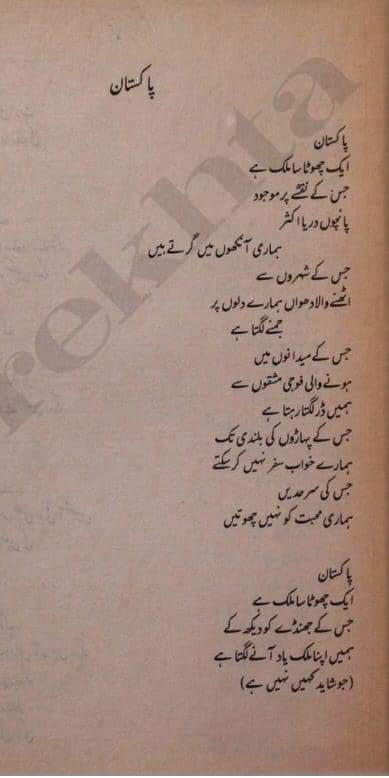 پاکستان
پاکستان
ایک چھوٹا سا ملک ہے
جس کے نقشے پر موجود
پانچوں دریا اکثر
ہماری آنکھوں میں گرتے ہیں
جس کے شہروں سے
اٹھنے والا دھواں ہمارے دلوں پر
جمنے لگتا ہے
جس کے میدانوں میں
ہونے والی فوجی مشقوں سے
ہمیں ڈر لگتا رہتا ہے
جس کے پہاڑوں کی بلندی تک
ہمارے خواب سفر نہیں کر سکتے
جس کی سرحدیں
ہماری محبت کو نہیں چھوتیں
پاکستان
ایک چھوٹا سا ملک ہے
جس کے جھنڈے کو دیکھ کے
ہمیں اپنا ملک یاد آنے لگتا ہے
(جو شاید کہیں نہیں ہے)
rekhta